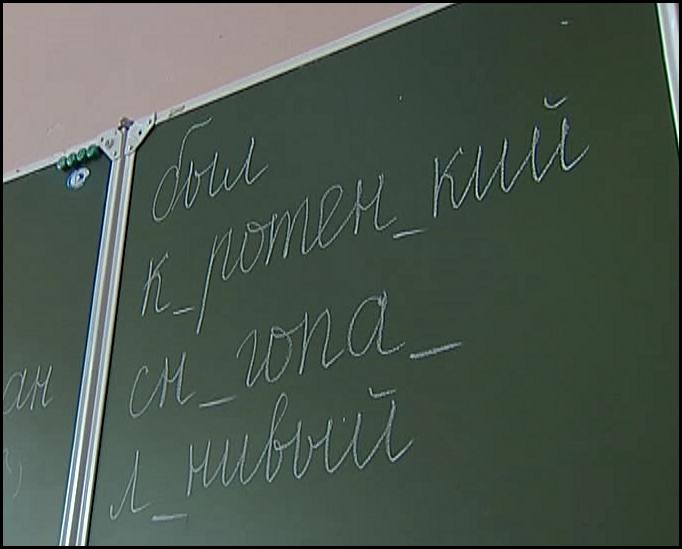 был
к_ротен_кий
сн_гопа_
л_нивый
ан